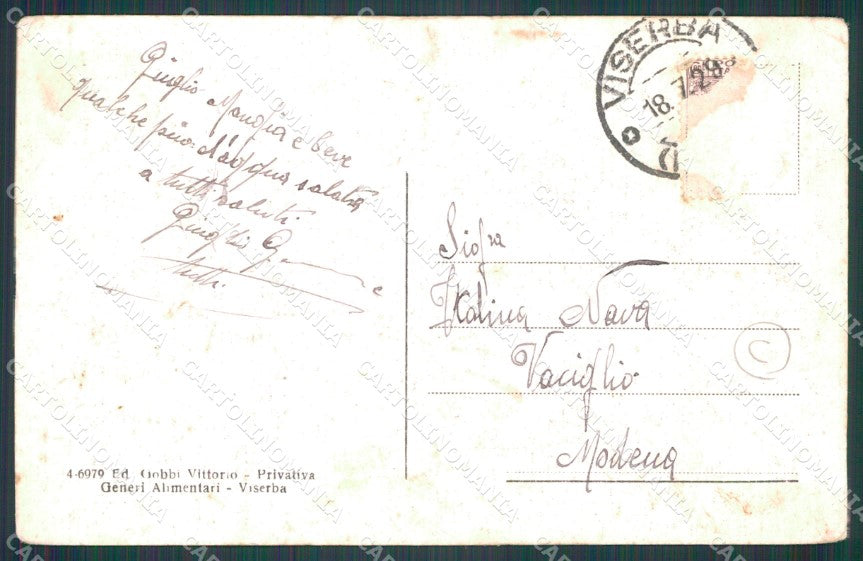 Giuglio Mangia e beve
qualche più d'acqua salata
a tutti saluti
Giuglio G
e
tutti
VISERBA
18.7.29
Sigra
Italina Nava
Vaciglio
Modena
C
4-6979 Ed. Gobbi Vittorio - Privativa
Generi Alimentari - Viserba
CARTOLINOMANIA